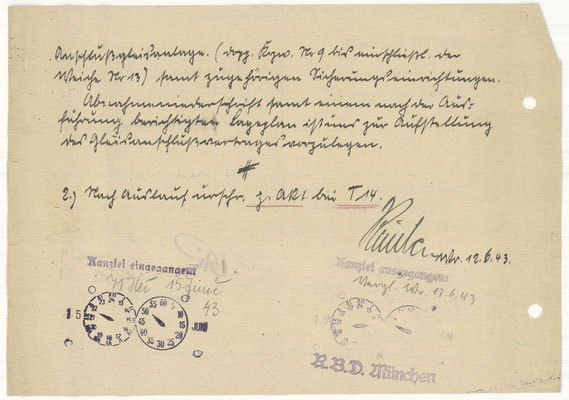 Anschlußgleisanlage. (dopp. Krzw. Nr 9 bis einschlüßl. der
Weiche Nr 13) samt zugehörigen Sicherungseinrichtungen.
Abnahmeniederschrift samt einem nach der Aus-
führung berichtigten Lageplan ist uns zur Aufstellung
des Gleisanschlußvertrages vorzulegen.
2.) Nach Auslauf urschr. z. Akt bei T 14.
Wr. 12.6.43.
Kanzlei eingegangen
15 Juni
43
Kanzlei ausgegangen
Vergl. Wr. 17.6.43
15 JUNI
R.B.D. München